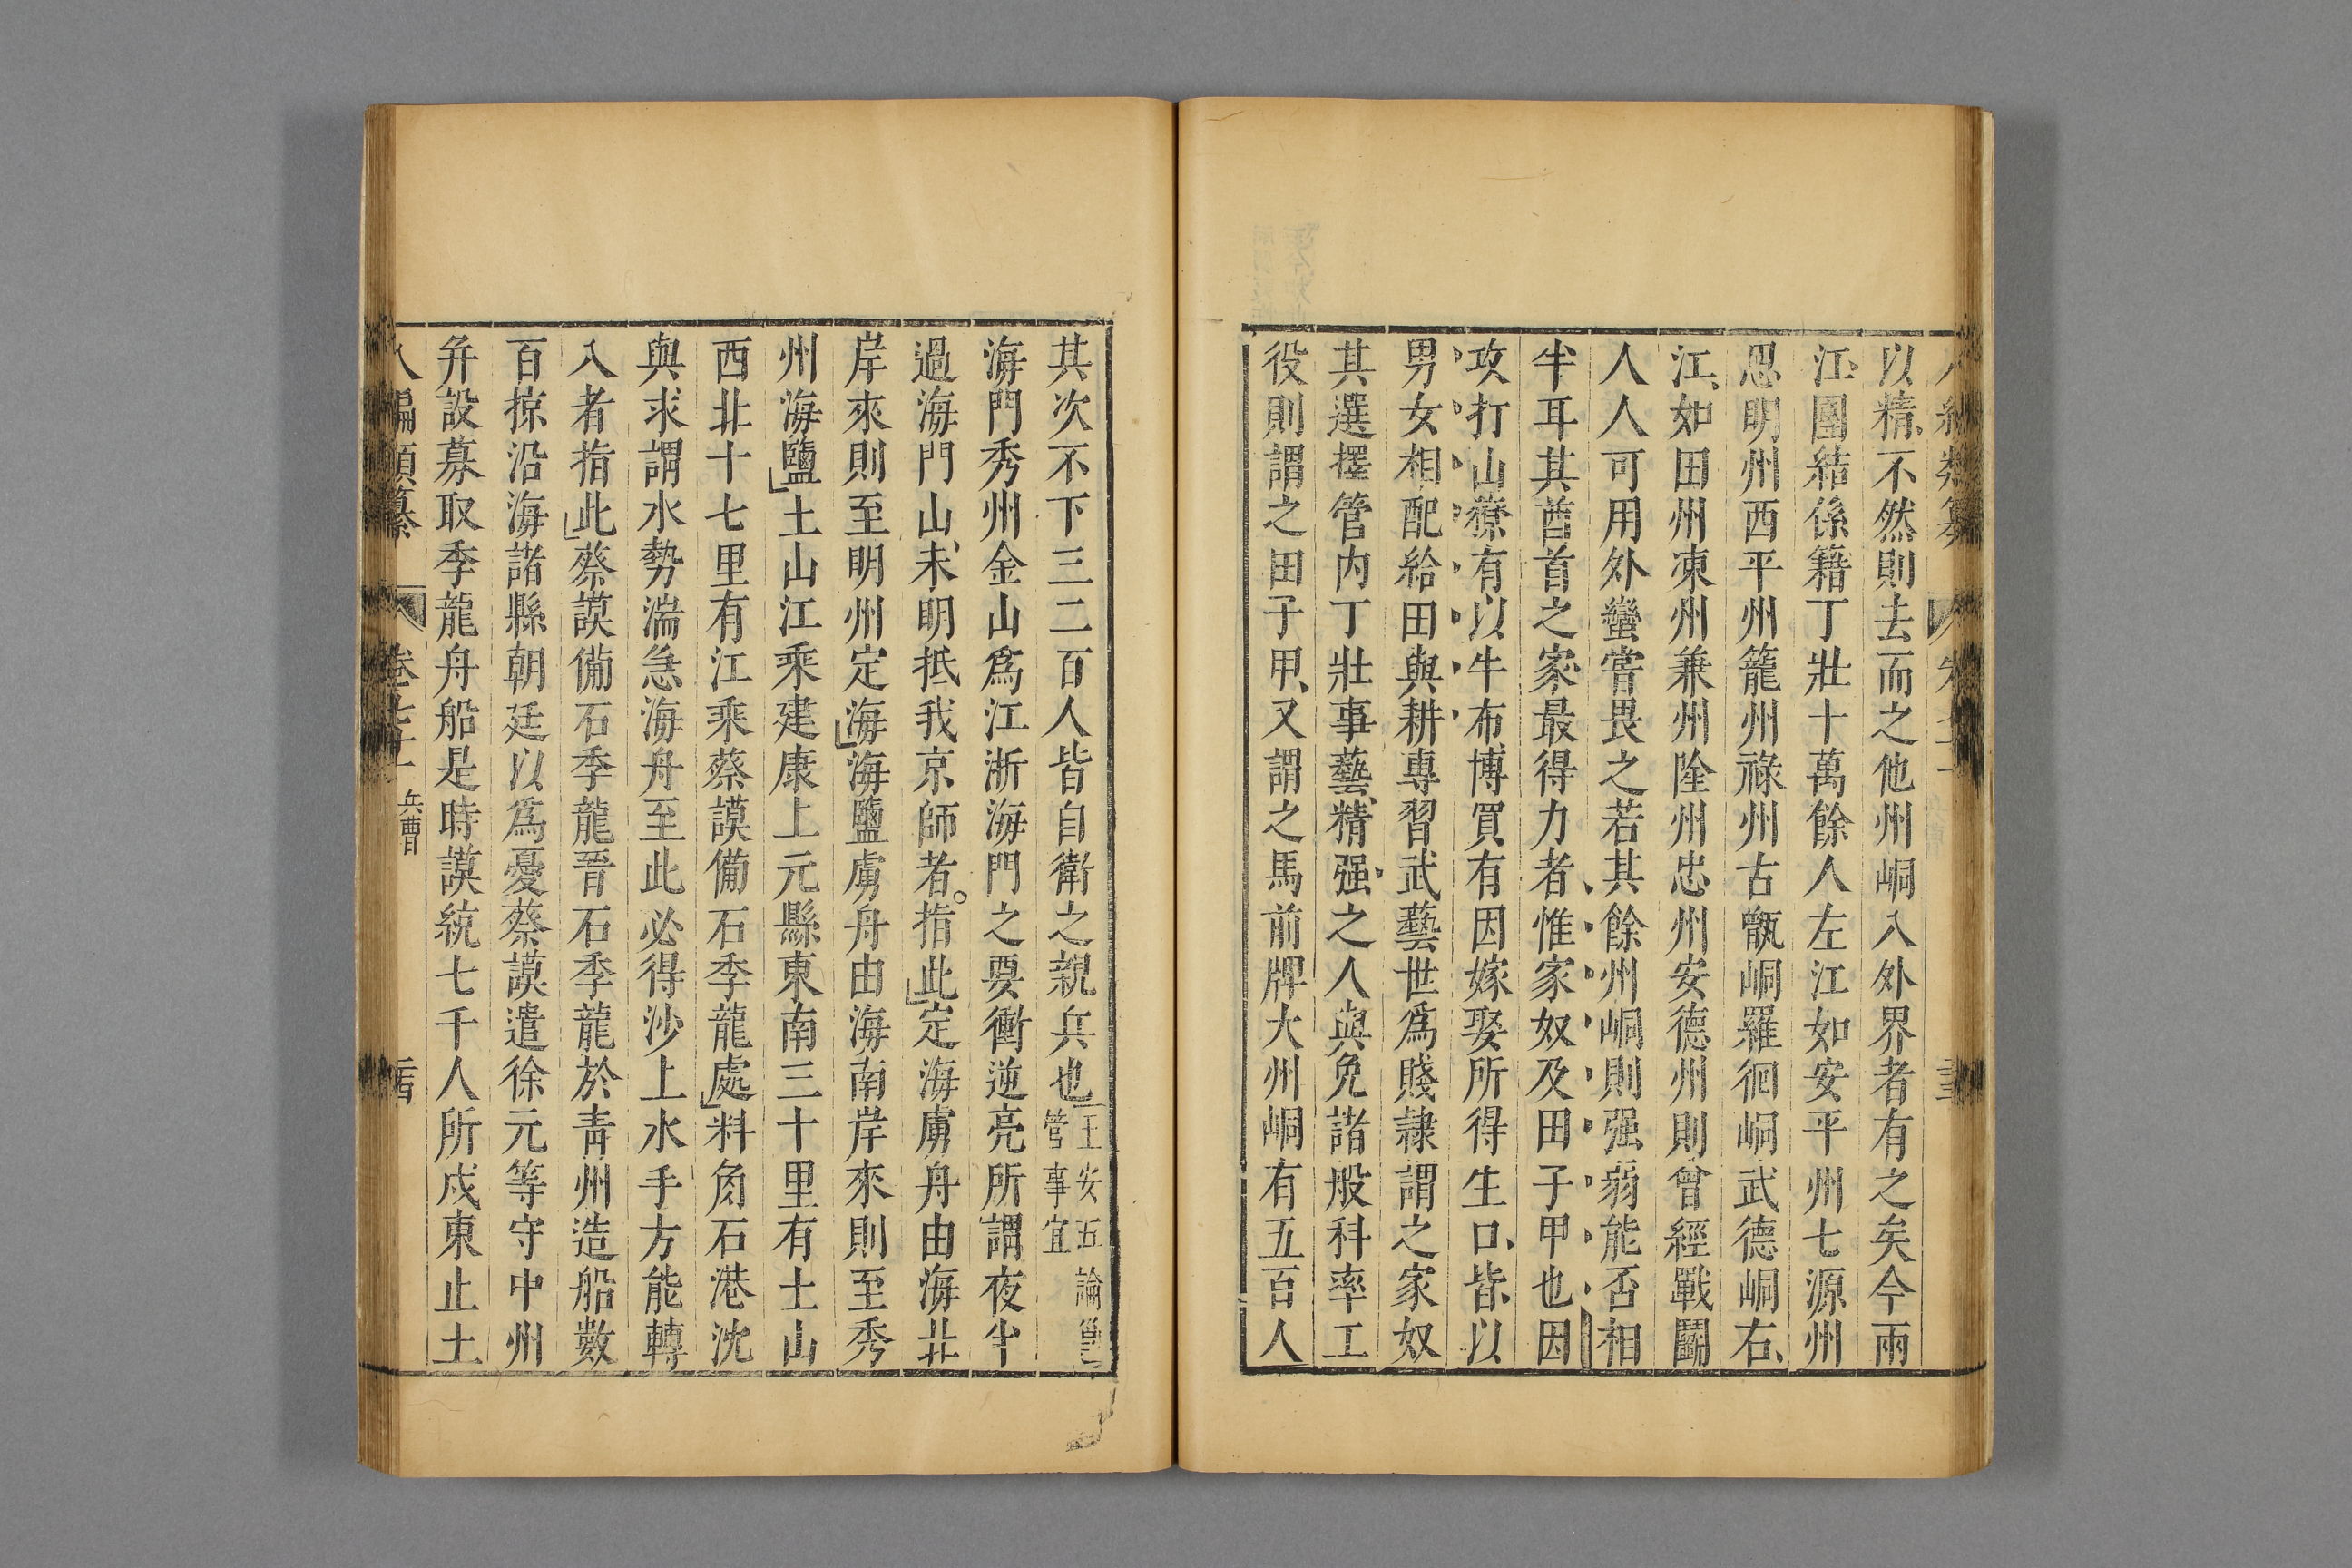 以精不然則去而之他州峒入外界者有之矣今兩
江團結係籍丁壯十萬餘人左江如安平州七源州
思明州西平州籠州祿州古甑峒羅徊峒武德峒右
江如田州凍州兼州隆州忠州安德州則曾經戰鬭
人人可用外蠻嘗畏之若其餘州峒則强弱能否相
半耳其酋首之家最得力者惟家奴及田子甲也因
攻打山獠有以牛布博買有因嫁娶所得生口皆以
男女相配給田與耕專習武藝世爲賤隷謂之家奴
其選擇管内丁壯事藝精强之人與免諸般科率工
役則謂之田子甲又謂之馬前牌大州峒有五百人
其次不下三二百人皆自衛之親兵也 王安石論邕管事宜
海門秀州金山爲江浙海門之要衝逆亮所謂夜半
過海門山未明抵我京師者。指此定海虜舟由海北
岸來則至明州定海海鹽虜舟由海南岸來則至秀
州海鹽土山江乘建康上元縣東南三十里有土山
西北十七里有江乘蔡謨備石季龍處料角石港沈
與求謂水勢湍急海舟至此必得沙上水手方能轉
入者指此蔡謨備石季龍晉石季龍於青州造船數
百掠沿海諸縣朝廷以爲憂蔡謨遣徐元等守中州
并設募取季龍舟船是時謨統七千人所戍東止土
八編類纂 卷七十 兵曹